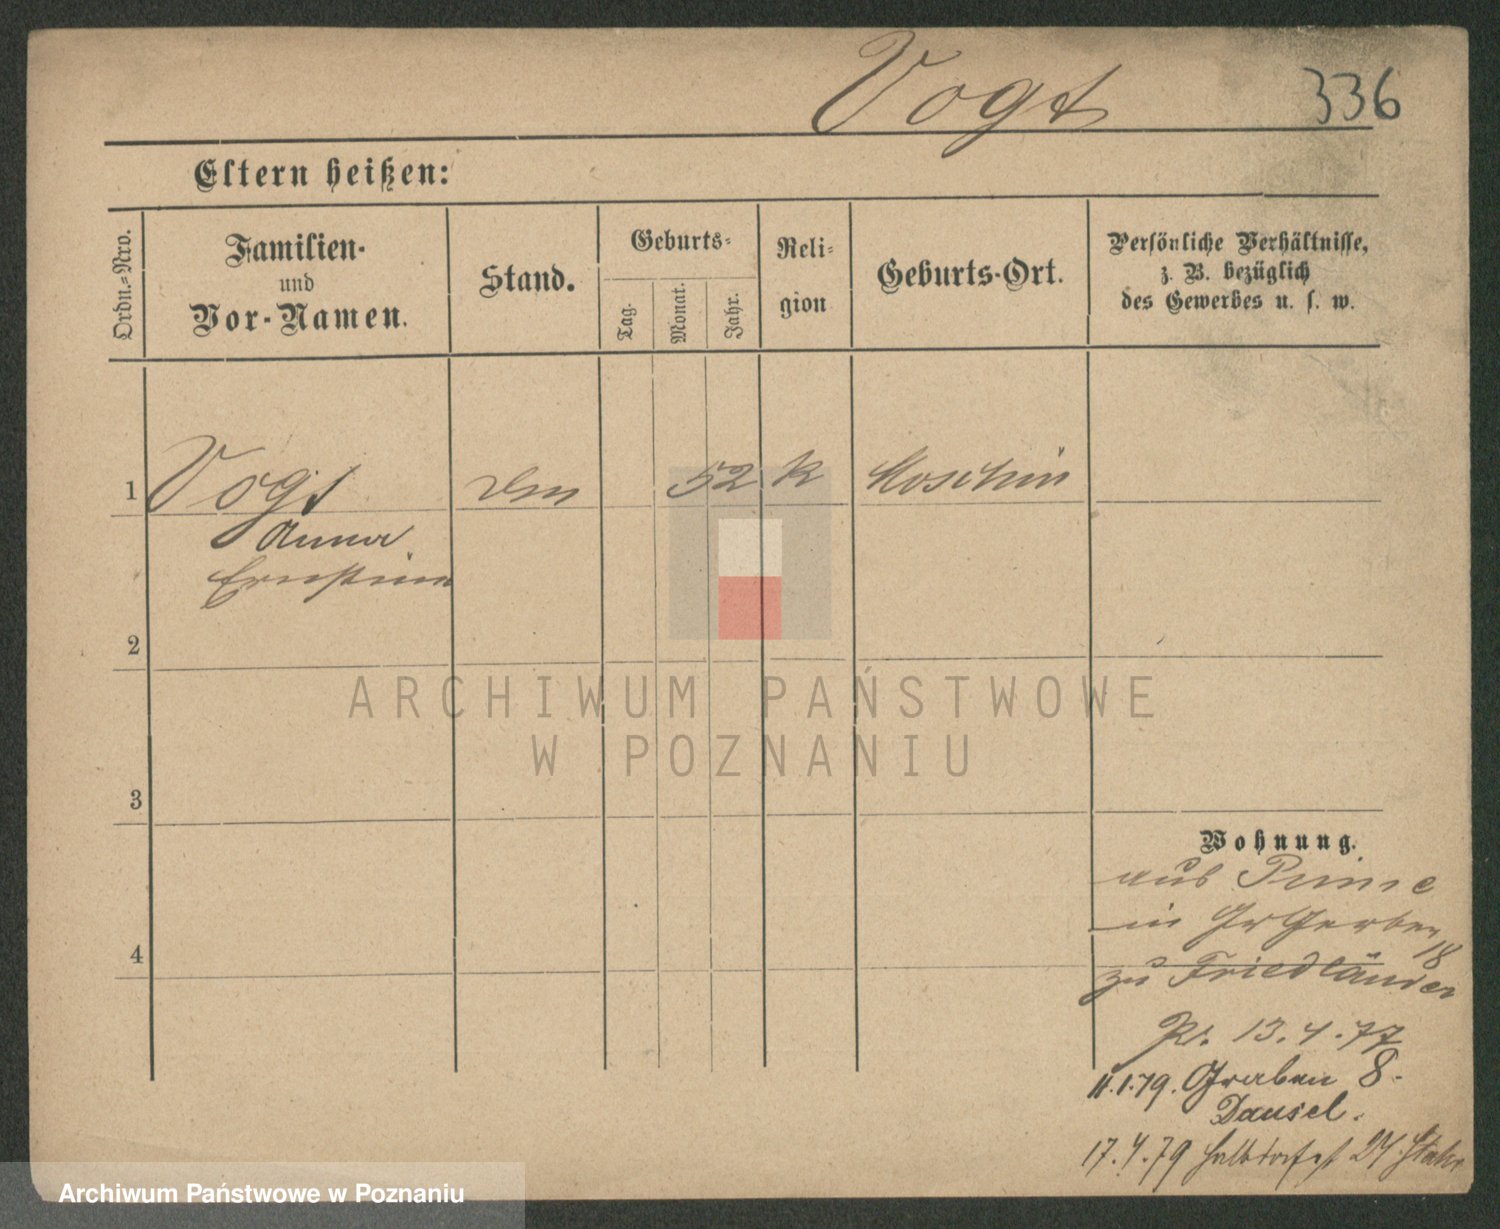 Vogt 336
Eltern heißen:
Ordn.-Nro.
Familien-
und
Vor-Namen.
Stand.
Geburts-
Tag.
Monat.
Jahr.
Reli-
gion
Geburts-Ort.
Persönliche Verhältnisse,
z. B. bezüglich
des Gewerbes u. s. w.
1 Vogt 52 k Moschin
Anna
Ernstine
2
ARCHIWUM PAŃSTWOWE
W POZNANIU
3
Wohnung.
aus Pinne
in Gr Gerber 18
4
zu Friedländer
13.4.77
11.1.79. Graben 8.
Dausel.
17.4.79 Halbdorfst 27
Archiwum Państwowe w Poznaniu